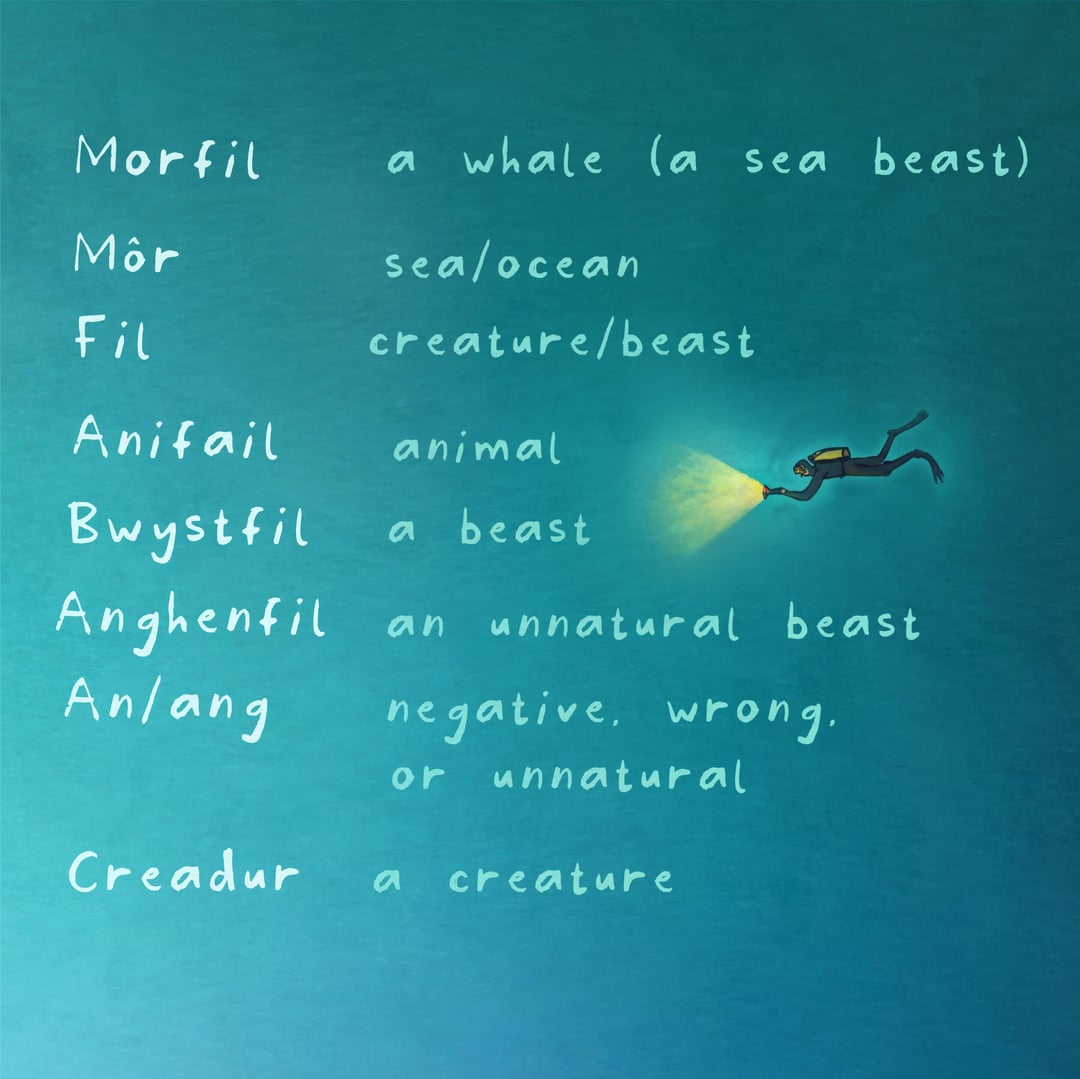 Morfil a whale (a sea beast)
Môr sea/ocean
Fil creature/beast
Anifail animal
Bwystfil a beast
Anghenfil an unnatural beast
An/ang negative, wrong,
or unnatural
Creadur a creature